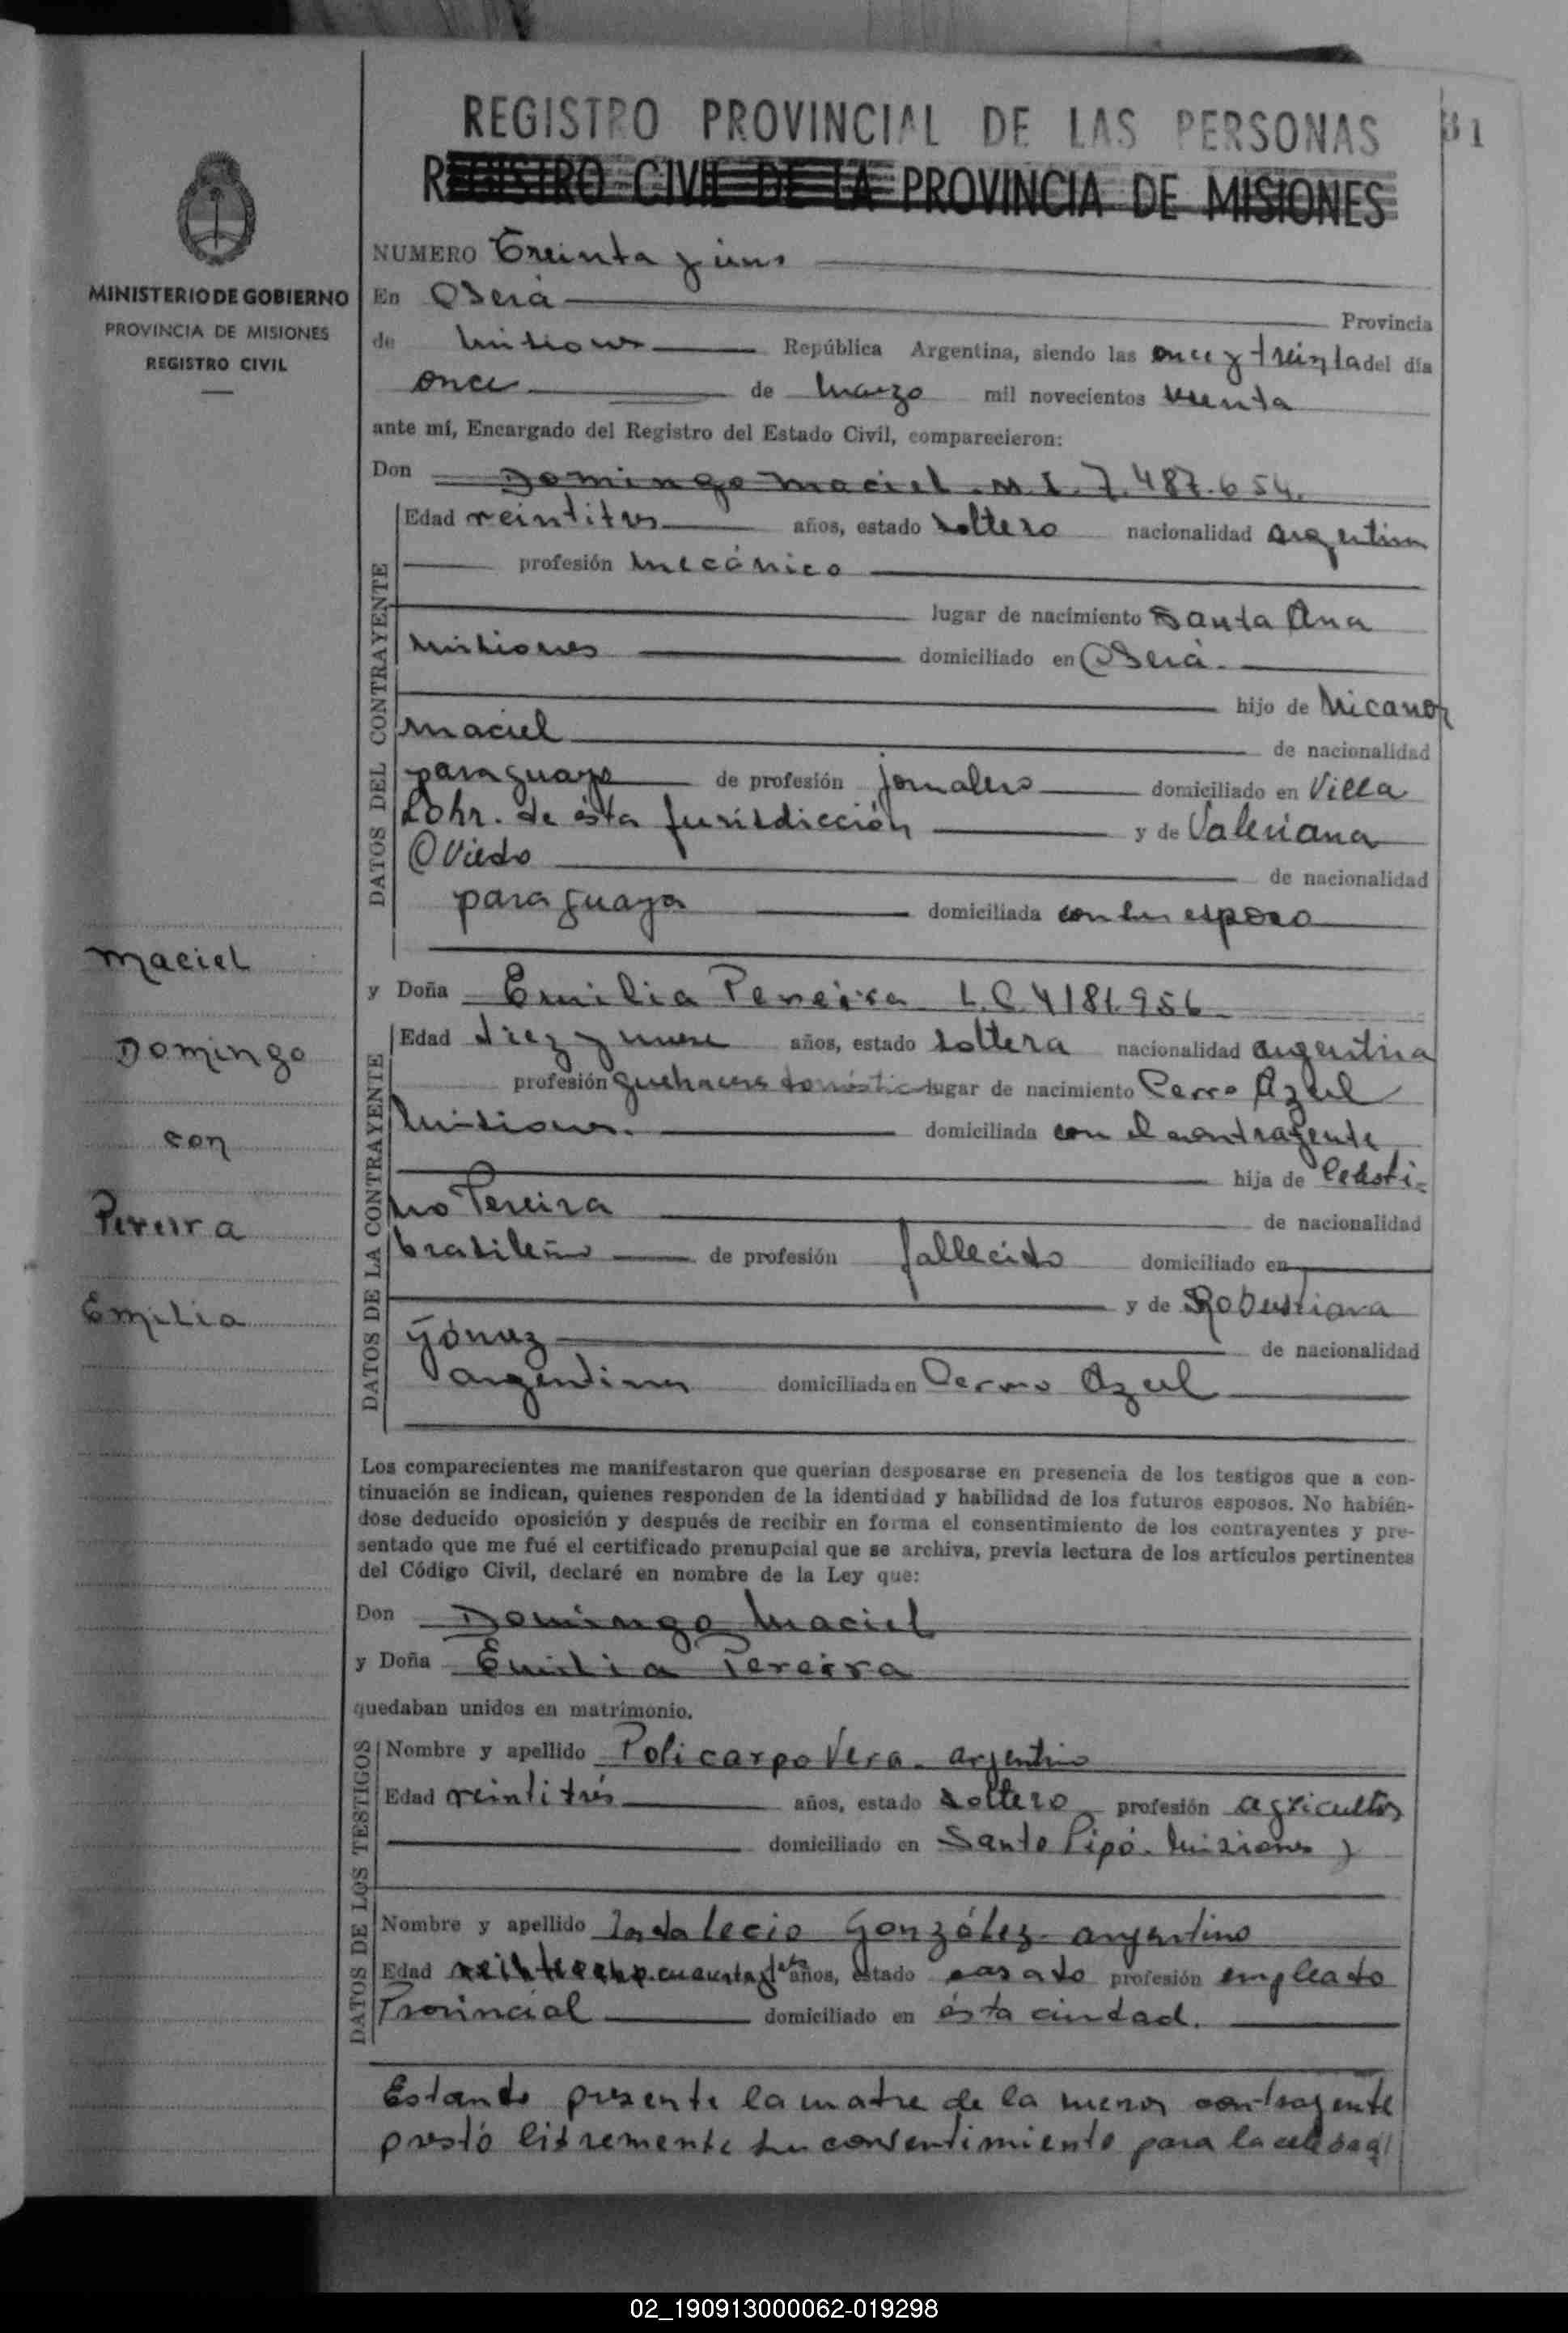 REGISTRO PROVINCIAL DE LAS PERSONAS 31
REGISTRO CIVIL DE LA PROVINCIA DE MISIONES
MINISTERIO DE GOBIERNO
PROVINCIA DE MISIONES
REGISTRO CIVIL
NUMERO Treinta y uno
En Oberá Provincia
de Misiones República Argentina, siendo las once y treinta del día
once de marzo mil novecientos
ante mí, Encargado del Registro del Estado Civil, comparecieron:
Don Domingo Maciel. M. I. 7.487.654.
DATOS DEL CONTRAYENTE
Edad veintitres años, estado soltero nacionalidad argentina
profesión mecánico
lugar de nacimiento Santa Ana
Misiones domiciliado en Oberá.
hijo de Nicanor
Maciel de nacionalidad
paraguayo de profesión jornalero domiciliado en Villa
Lohr. de ésta Jurisdicción y de Valeriana
Oviedo de nacionalidad
paraguaya domiciliada con su esposo
Maciel
Domingo
con
Pereira
Emilia
y Doña Emilia Pereira L.C. 4181.956
DATOS DE LA CONTRAYENTE
Edad diez y nueve años, estado soltera nacionalidad argentina
profesión quehaceres domésticos lugar de nacimiento Cerro Azul
Misiones. domiciliada con el contrayente
hija de Celesti-
no Pereira de nacionalidad
brasileño de profesión fallecido domiciliado en
y de Robustiana
Gómez de nacionalidad
argentina domiciliada en Cerro Azul
Los comparecientes me manifestaron que querían desposarse en presencia de los testigos que a con-
tinuación se indican, quienes responden de la identidad y habilidad de los futuros esposos. No habién-
dose deducido oposición y después de recibir en forma el consentimiento de los contrayentes y pre-
sentado que me fué el certificado prenupcial que se archiva, previa lectura de los artículos pertinentes
del Código Civil, declaré en nombre de la Ley que:
Don Domingo Maciel
y Doña Emilia Pereira
quedaban unidos en matrimonio.
DATOS DE LOS TESTIGOS
Nombre y apellido Policarpo Vera. argentino
Edad veintitrés años, estado soltero profesión agricultor
domiciliado en Santo Pipó. Misiones y
Nombre y apellido Indalecio González. argentino
Edad años, estado casado profesión empleado
Provincial domiciliado en ésta ciudad.
Estando presente la madre de la menor contrayente
prestó libremente su consentimiento para la
02_190913000062-019298